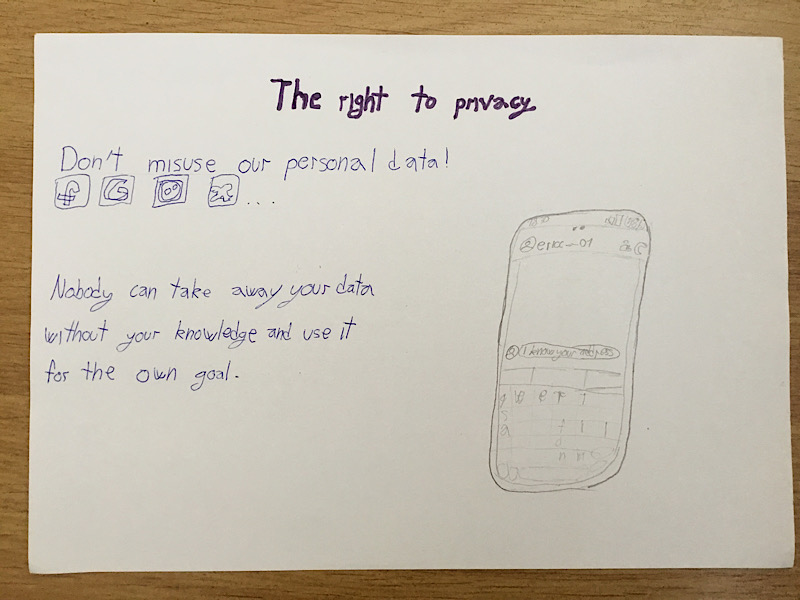 The right to privacy
Don't misuse our personal data!
f G ...
Nobody can take away your data
without your knowledge and use it
for the own goal.
I know your address